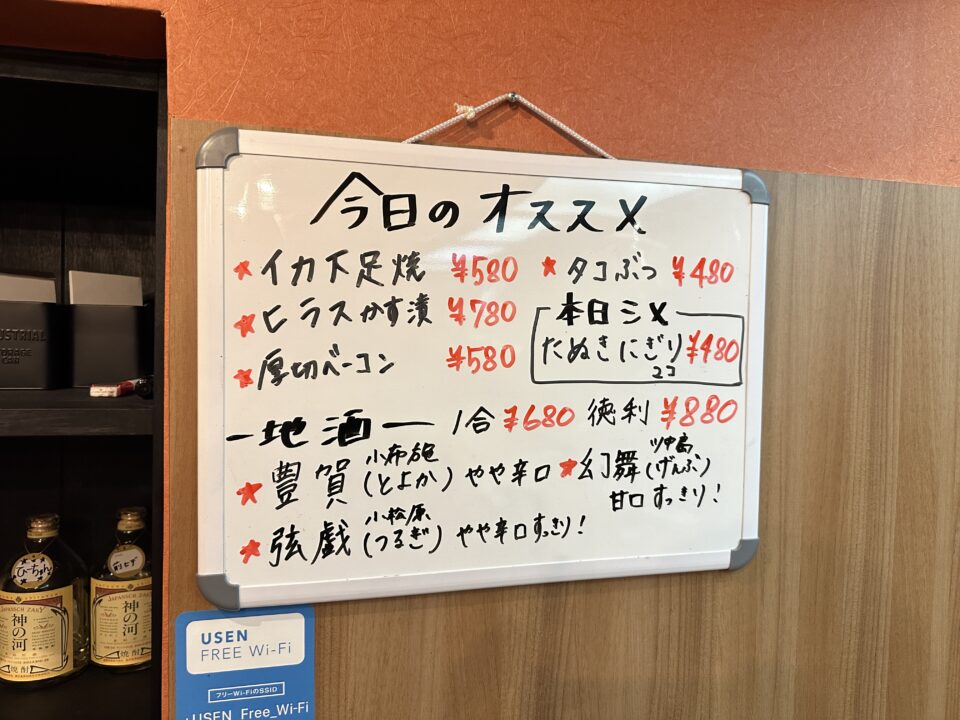 今日のオススメ
★イカ下足焼 ¥580
★タコぶつ ¥480
★ヒラスかす漬 ¥780
★厚切ベーコン ¥580
本日シメ
たぬきにぎり ¥480
2コ
地酒 1合 ¥680 徳利 ¥880
小布施
★豊賀(とよか)やや辛口
★幻舞(げんぶ)
甘口すっきり!
小松原
★弦戯(つるぎ)やや辛口すっきり!
INDUSTRIAL
STORAGE
CAN
ひーちゃん
JAPANSCH ZAKY
神の河
焼酎
JAPANSCH ZAKY
神の河
焼酎
USEN
FREE Wi-Fi
フリーWi-FiのSSID
USEN_Free_Wi-Fi